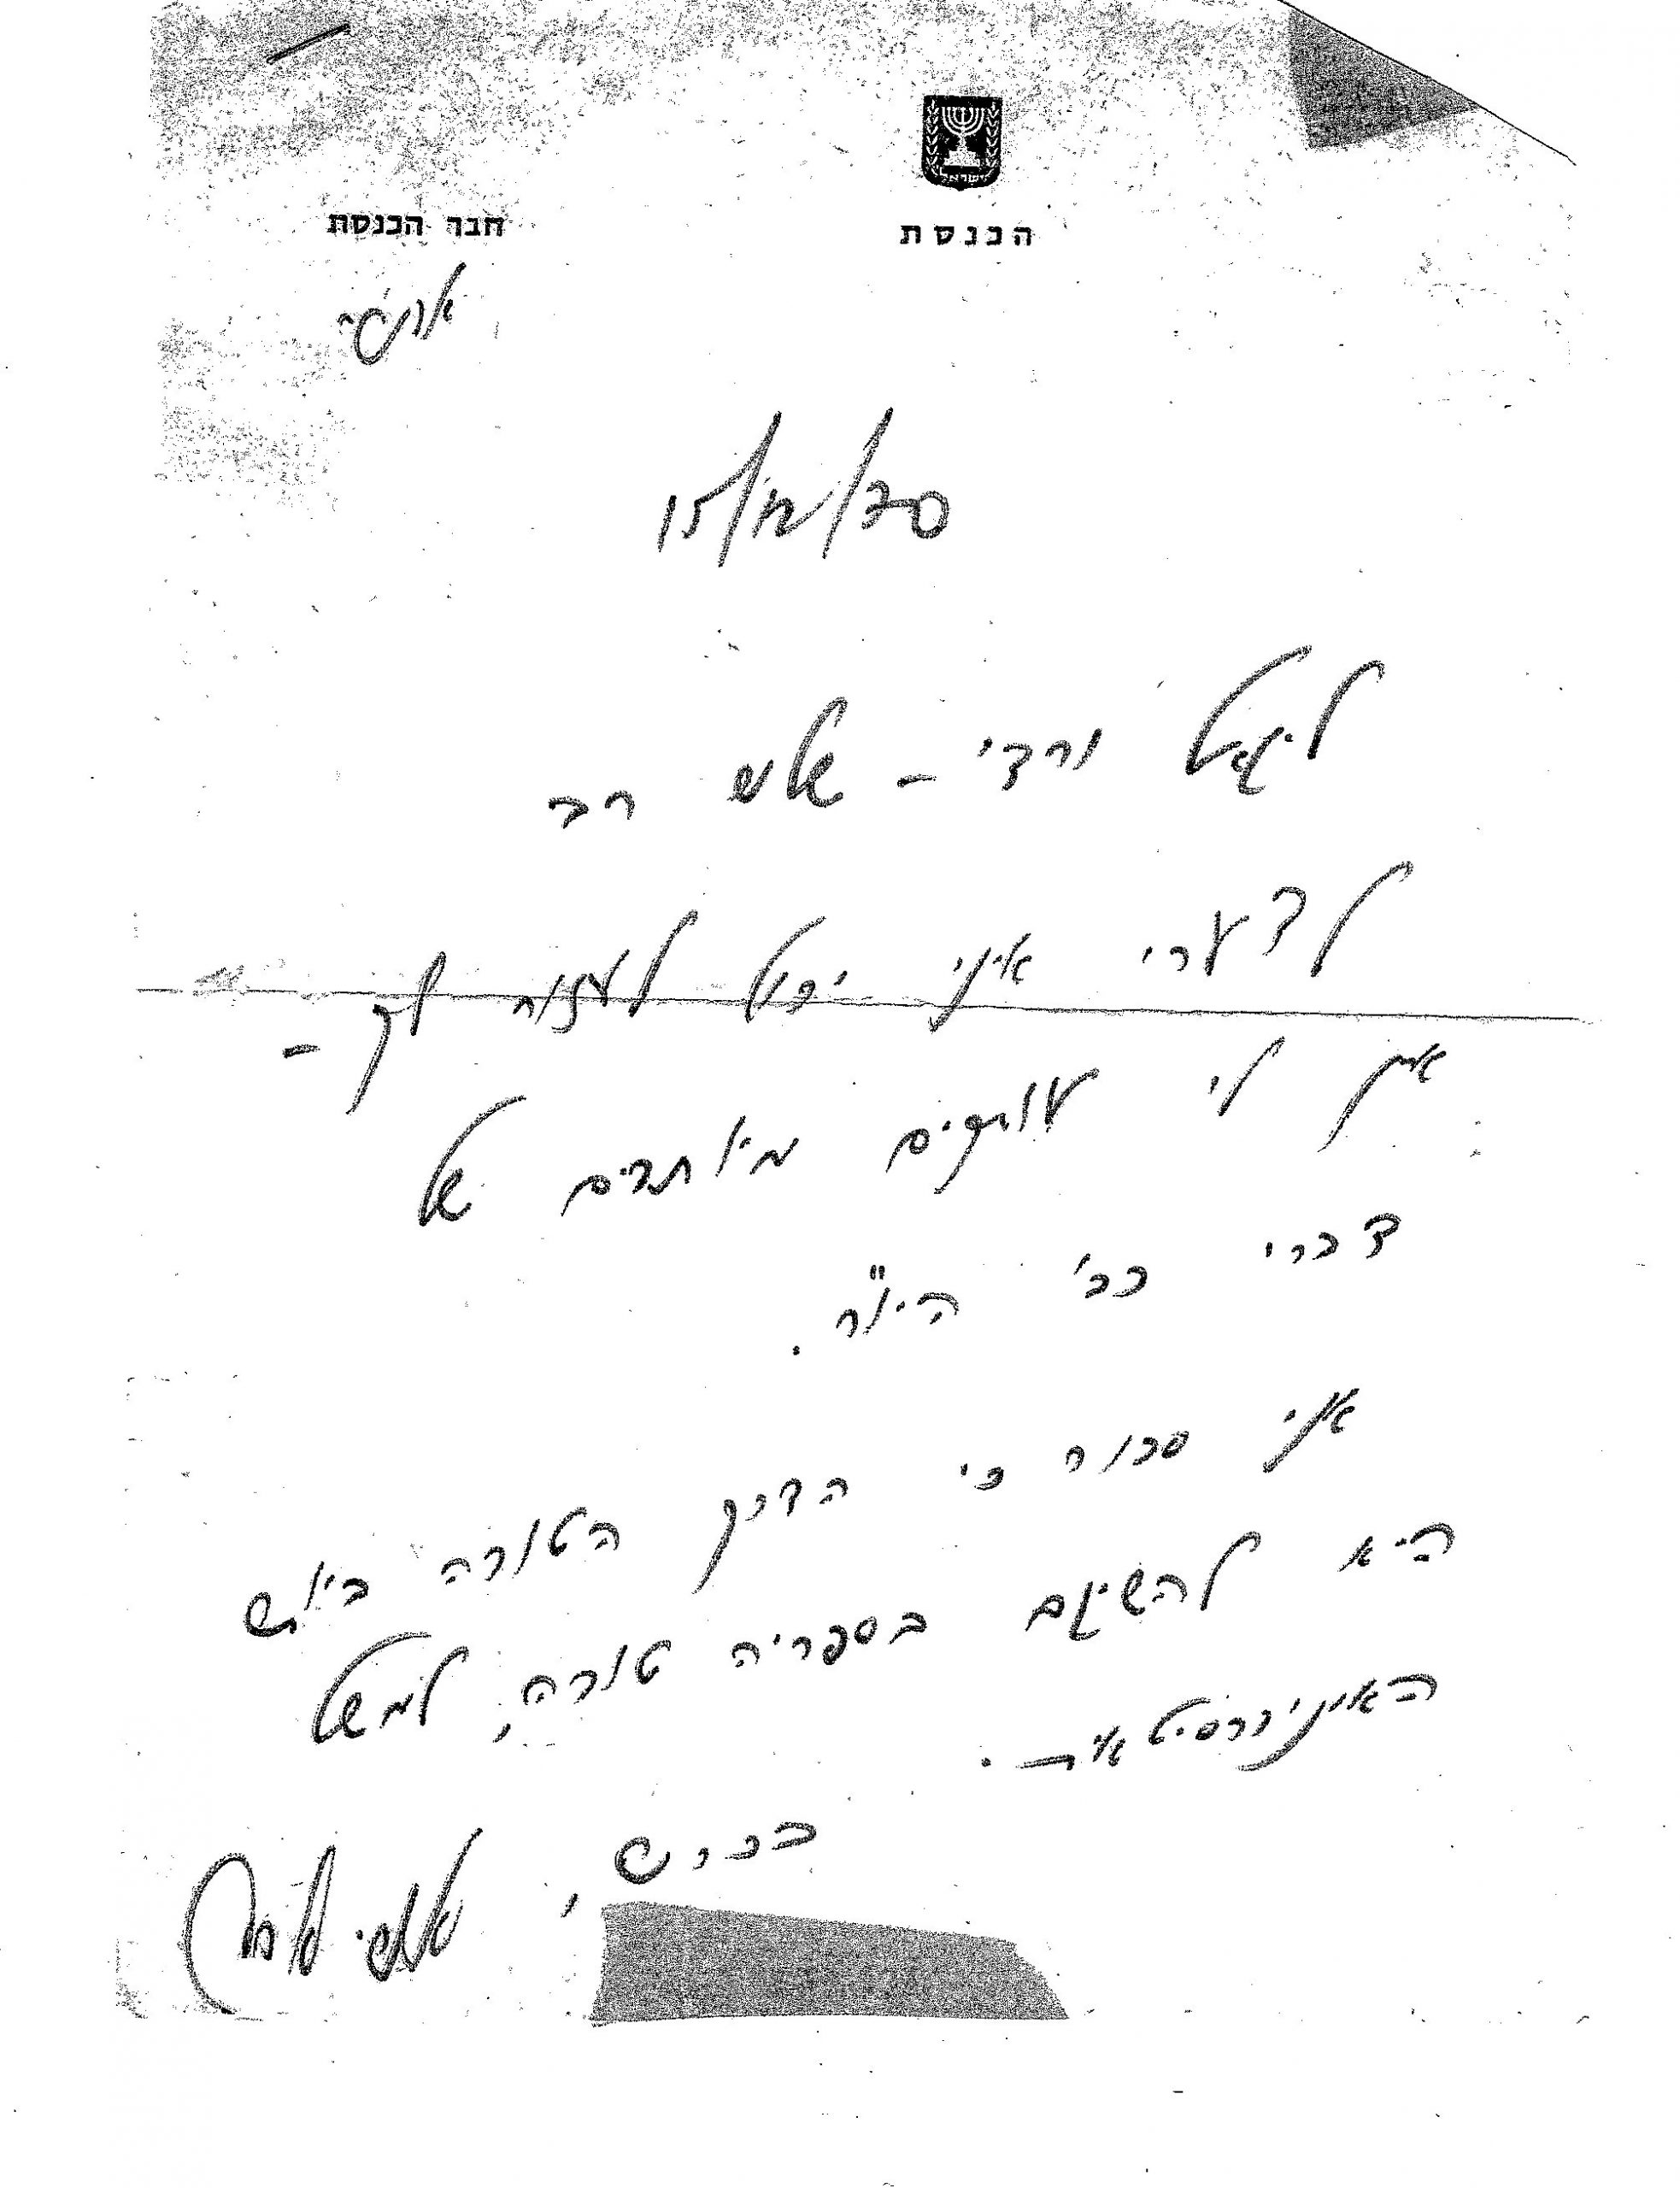 ישראל
הכנסת
חבר הכנסת
אישי
15/12/70
ליגאל ורדי - שלום רב
לצערי איני יכול לעזור לך -
אין לי עותקים מיותרים של
דברי כב' היו"ר.
אני סבור כי הדרך הטובה ביותר
היא להשיגם בספריה טובה, למשל
האוניברסיטאית.
בברכה,